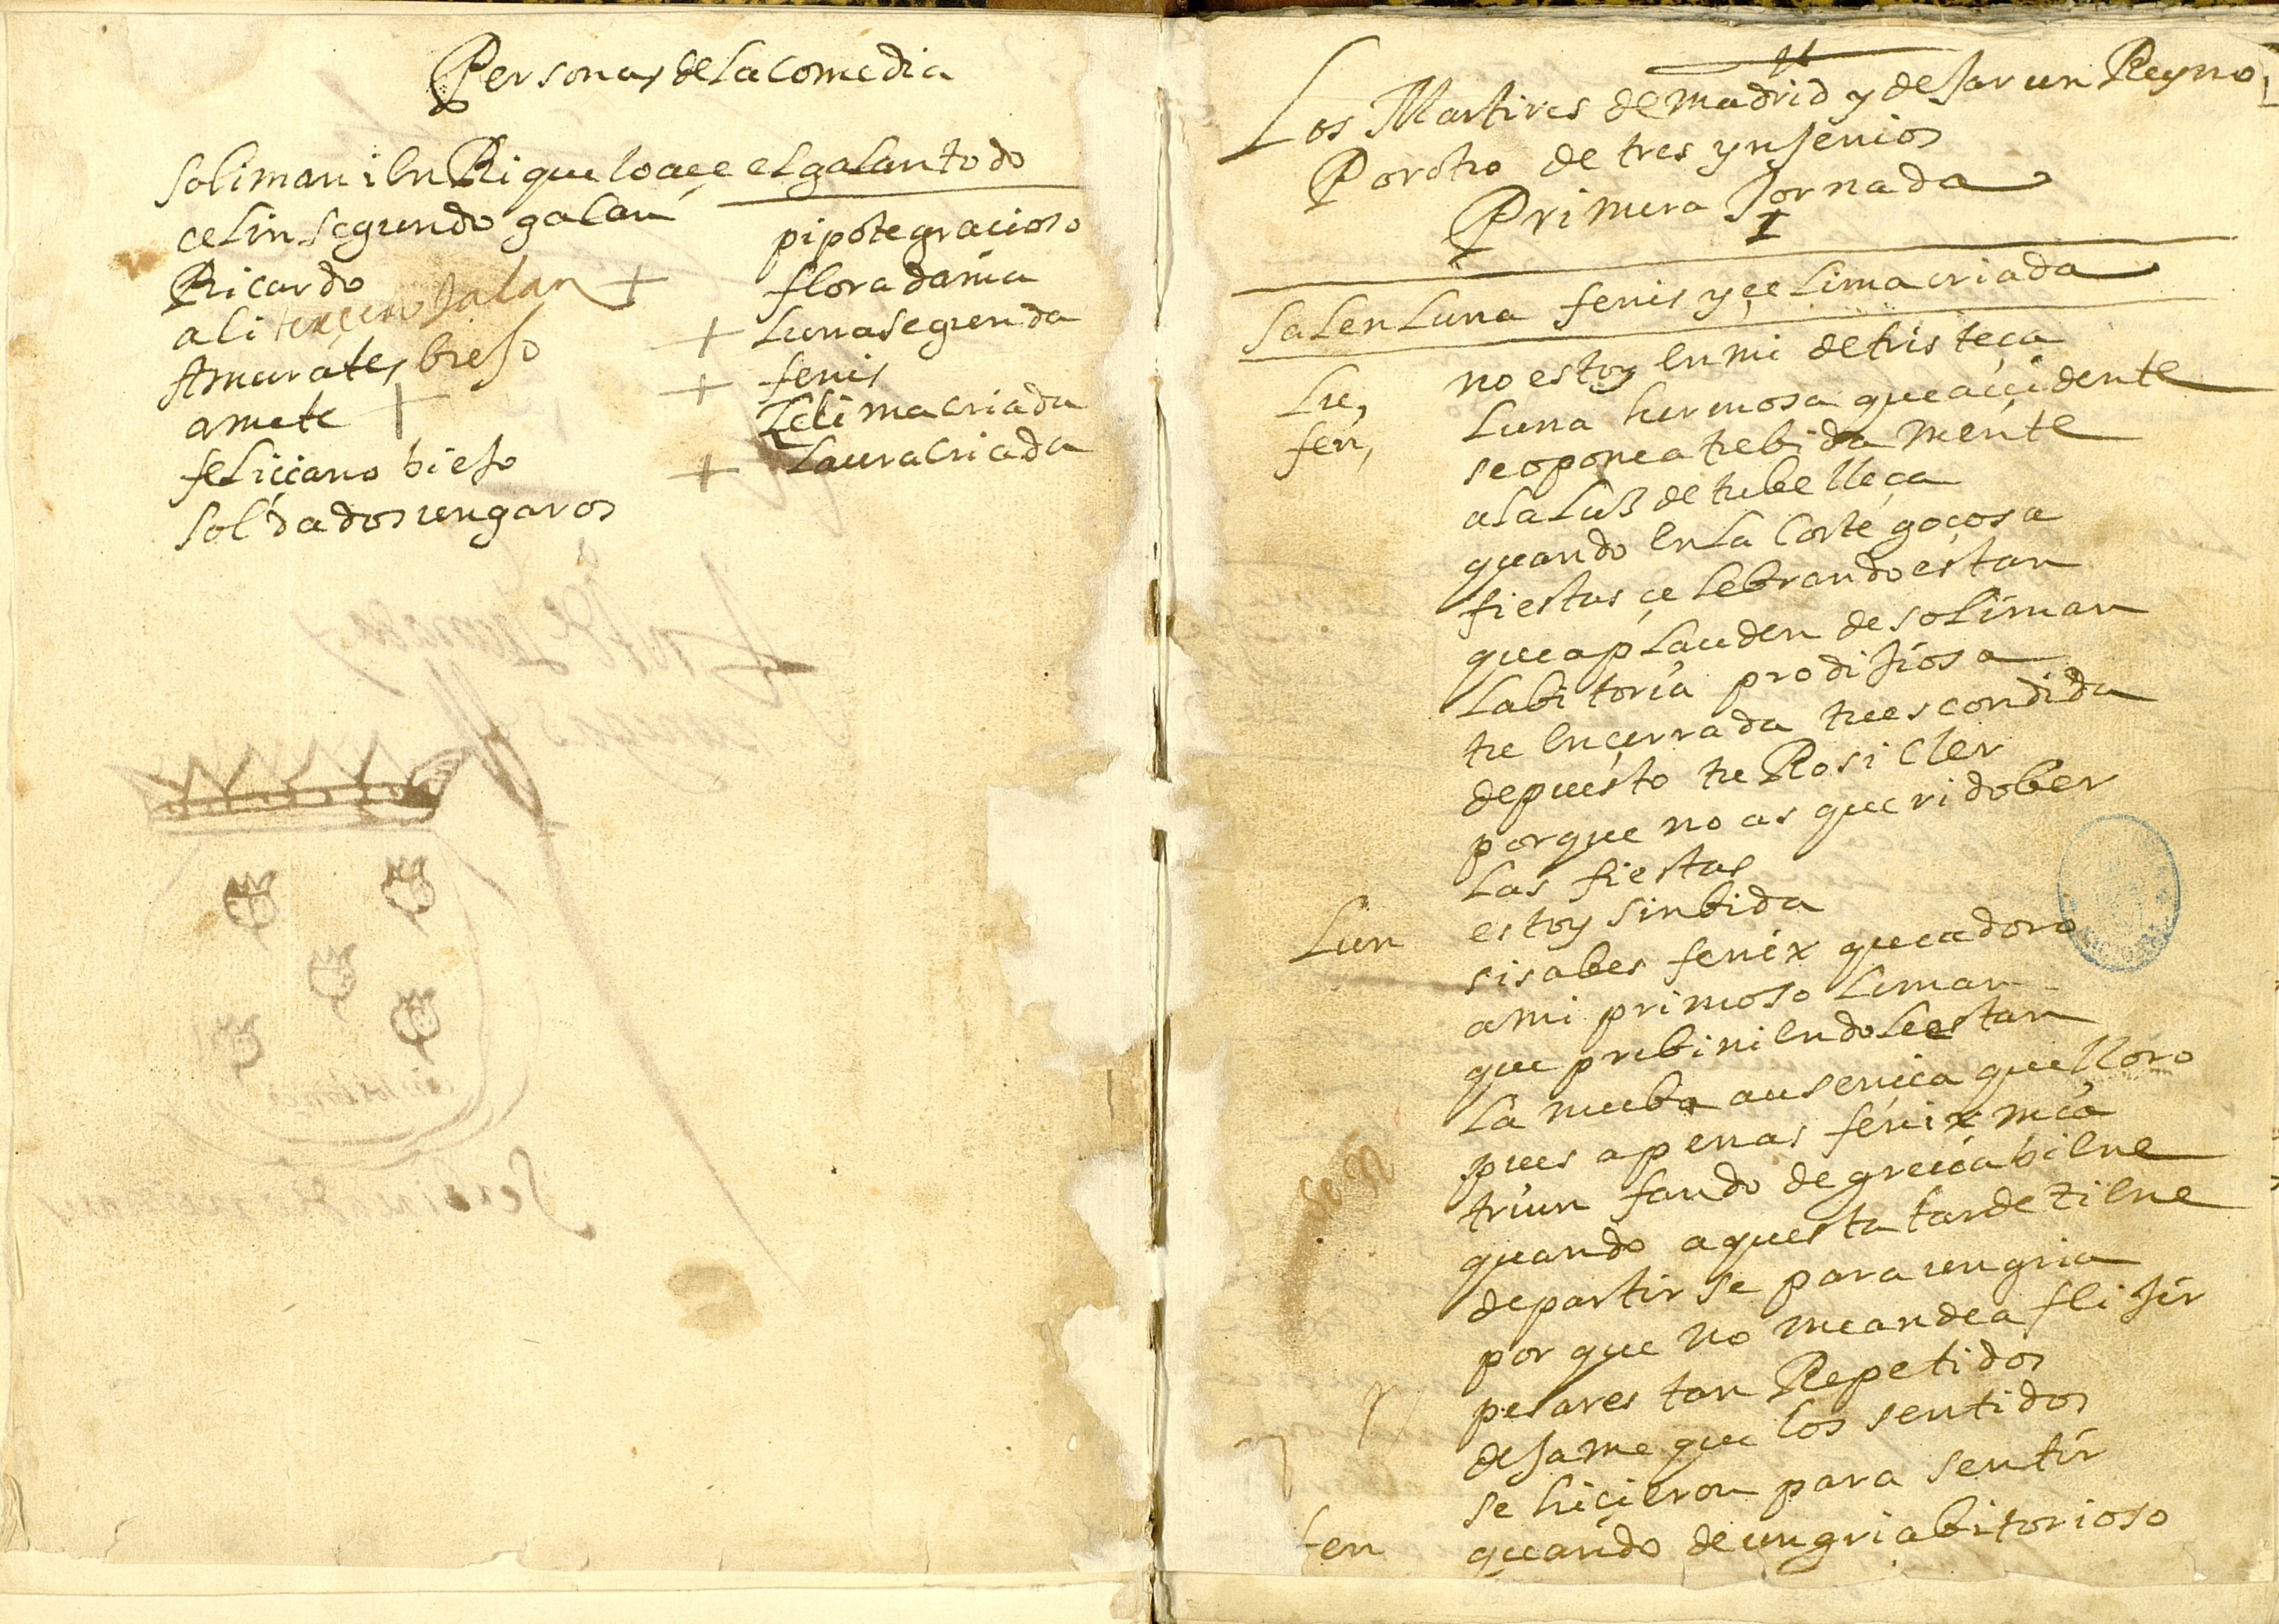 Personas de la comedia
soliman i enRique lo açe el galan todo
celin segundo galan
Ricardo
ali terçero galan +
Amurates biejo
amete +
feliciano biejo
soldados ungaros
pipote gracioso
flora dama
+ Luna segunda
+ fenis
Zelima criada
+ Laura criada
Los Martires de madrid y dejar un Reyno
Por otro de tres ynjenios
Primera Jornada
1
Salen Luna fenis y çelima criada
Lu, no estoy en mi de tristeça
fen, Luna hermosa que açidente
se opone atrebida mente
a la luz de tu belleça
quando en la corte goçosa
fiestas çelebrando estan
que aplauden de soliman
la bitoria prodijiosa
tu ençerrada tu escondida
depuesto tu Rosicler
porque no as querido ber
las fiestas
Lun estoy sin bida
si sabes fenix que adoro
a mi primo soliman
que prebiniendole estan
la nueba ausençia que lloro
pues apenas fenix mia
triunfando de greçia biene
quando aquesta tarde tiene
de partirse para ungria
por que no me an de aflijir
pesares tan Repetidos
dejame que los sentidos
se hiçieron para sentir
fen quando de ungria bitorioso